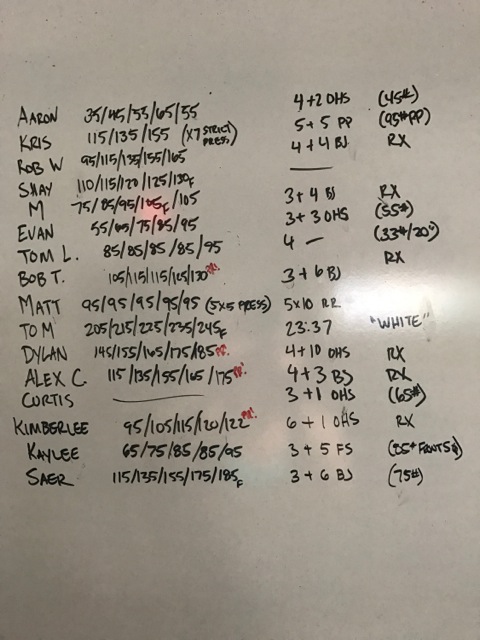 AARON 35/45/55/65/55 4+2 OHS (45#)
KRIS 115/135/155 (x7 STRICT PRESS) 5+5 PP (95# PP)
ROB W 95/115/135/155/165 4+4 BJ RX
SHAY 110/115/120/125/130F —
M 75/85/95/105F/105 3+4 BJ RX
EVAN 55/65/75/85/95 3+3 OHS (55#)
TOM L. 85/85/85/85/95 4 — (33#/20")
BOB T. 105/115/115/125/130 PR! 3+6 BJ RX
MATT 95/95/95/95/95 (5x5 PRESS) 5x10 RR
TOM 205/215/225/235/245F 23:37 "WHITE"
DYLAN 145/155/165/175/185 PR! 4+10 OHS RX
ALEX C. 115/135/155/165/175 PR! 4+3 BJ RX
CURTIS — 3+1 OHS (65#)
KIMBERLEE 95/105/115/120/122 PR! 6+1 OHS RX
KAYLEE 65/75/85/85/95 3+5 FS (35# FRONT SQ)
SAER 115/135/155/175/185F 3+6 BJ (75#)